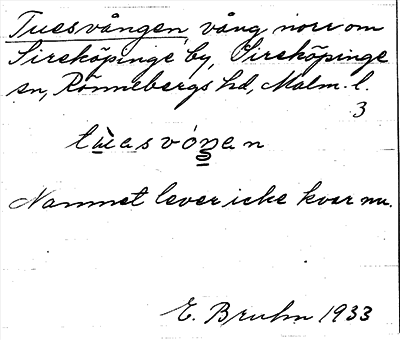 Tuesvången, vång norr om
Sireköpinge by, Sireköpinge
sn, Rönnebergs hd, Malm. l.
3
Namnet lever icke kvar nu.
E. Bruhn 1933